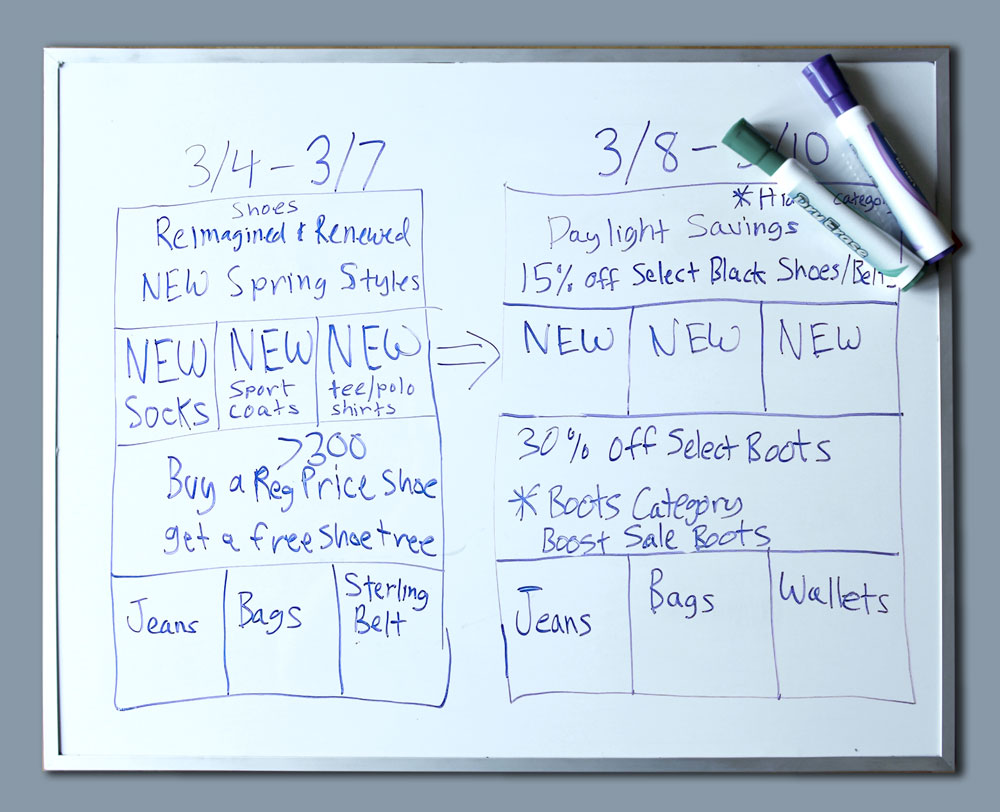 3/4 – 3/7
Shoes
ReImagined & Renewed
NEW Spring Styles
NEW Socks
NEW Sport coats
NEW tee/polo shirts
>300
Buy a Reg Price shoe
get a free shoe tree
Jeans
Bags
Sterling Belt
3/8 – /10
* categ
Daylight Savings
15% off Select Black Shoes/Belts
NEW
NEW
NEW
30% off Select Boots
* Boots Category
Boost Sale Boots
Jeans
Bags
Wallets